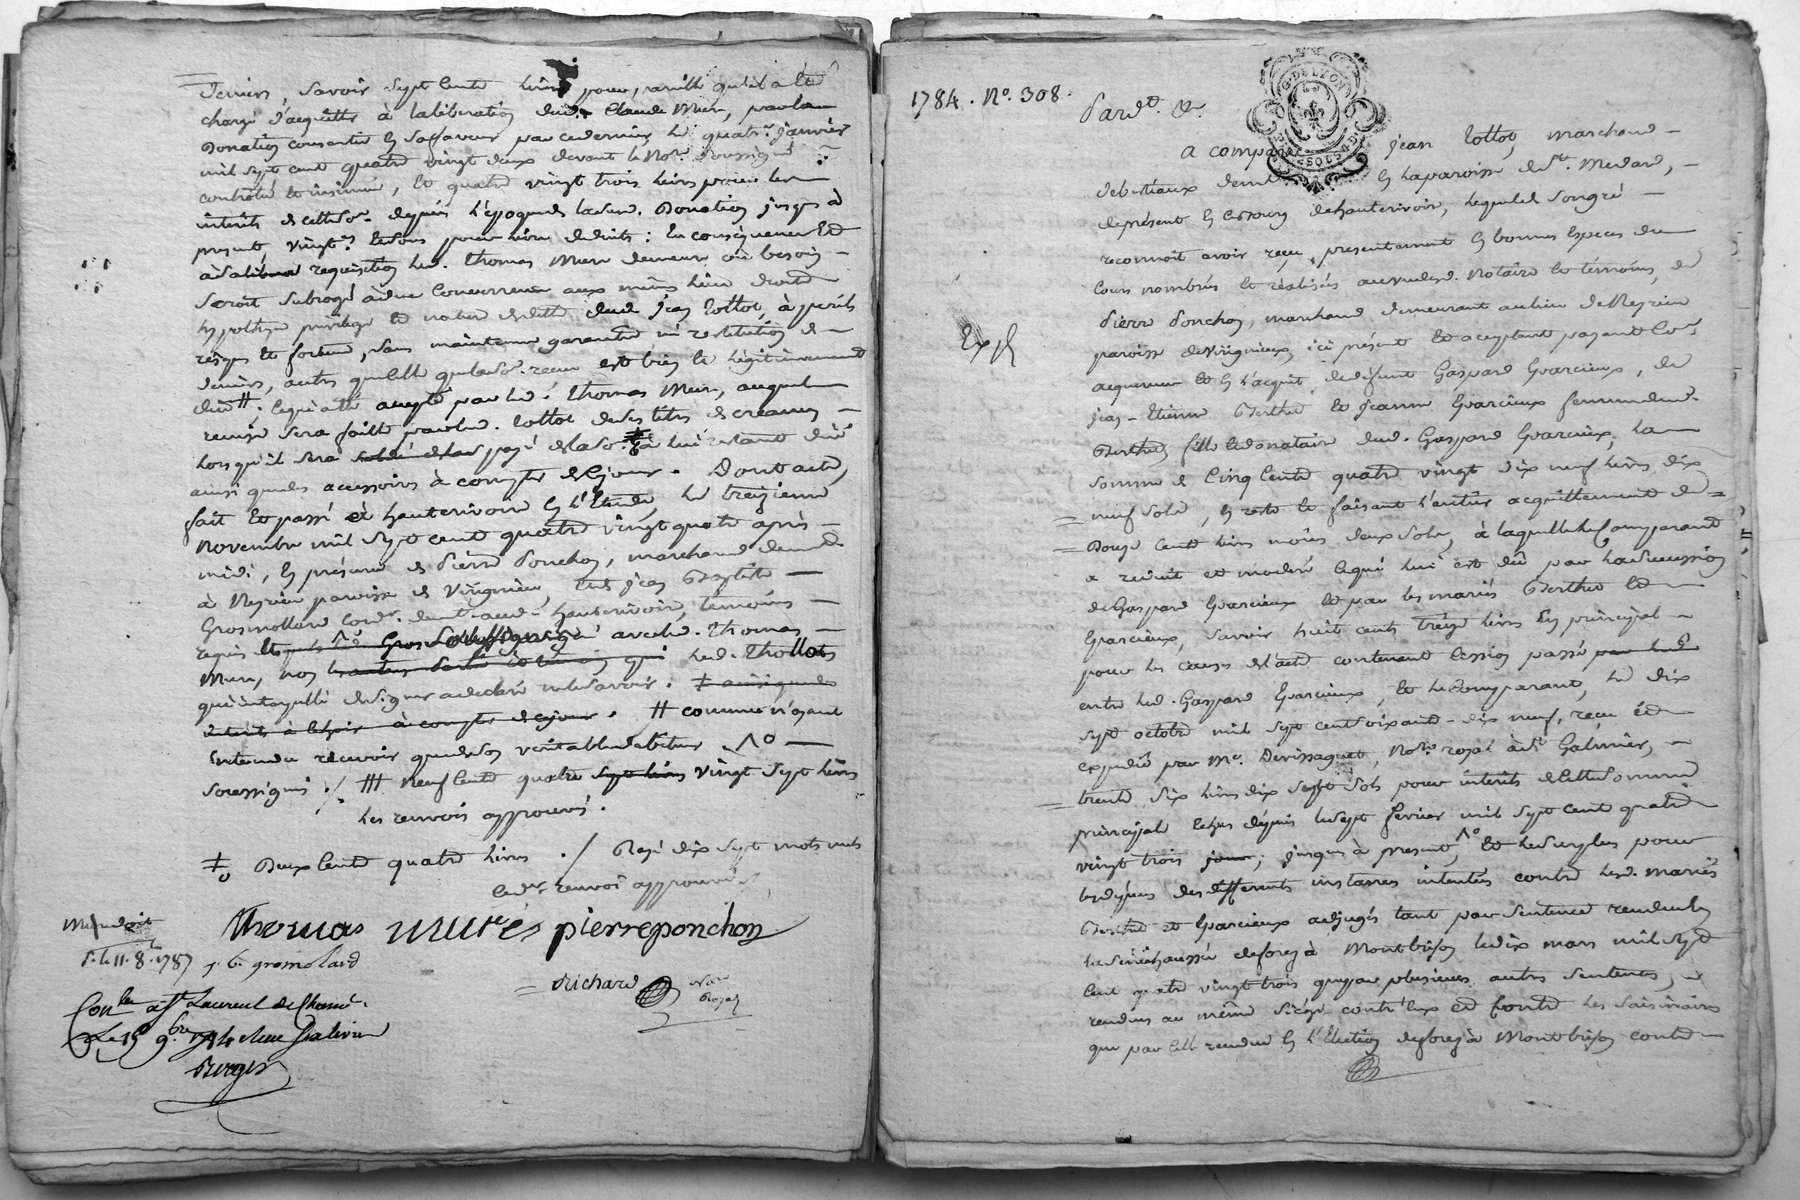 Deniers, savoir sept cents livres pour, qu'il a été
chargé d'acquitter à la libération dud. Claude Mure, par la
Donation consentie en sa faveur par ce dernier le quatre janvier
mil sept cent quatre vingt deux devant le Nore. soussigné
controlé et insinué, et quatre vingt trois livres pour les
intérêts de cette so.e depuis l'époque de lad. Donation jusqu'à
présent, vingte. et sous pour livre déduits : En conséquence et
à sa réquisition led. thomas Mure demeure où besoin
seroit subrogé aux mêmes lieu droits
hypothèque privilège et nature de dette dud. jean tottot, à périls
risques et fortune, sans maintenue garantie ni restitution de
deniers, autres que celle que lad. so.e reçue est bien et légitimement
due #; ce qui a été accepté par led. thomas Mure, auquel
remise sera faite par led. tottot de ses titres de créances
lorsqu'il sera payé de la so.e à lui restante due
ainsi que des accessoires à compter de ce jour. Dont acte,
fait et passé à hauterivoire en l'Etude, le treizieme
Novembre mil sept cent quatre vingt quatre après
midi, en présence de Pierre Ponchon, marchand demt.
à Meyrieu paroisse de Virignieu, et de jean Baptiste
Grosmollard Cord.r demt. aud. hauterivoire, témoins
requis avec led. thomas
Mure, non led. thottot
qui interpellé de signer a déclaré ne le savoir. ‡ ainsi que des
intérêts à échoir à compter de ce jour. # comme n'ayant
entendu recevoir que de son véritable débiteur ^o
soussignés ./. ### neuf cent quatre sept livres vingt sept livres
les renvois approuvés.
‡ Deux cent quatre livres ./ Rayé dix sept mots nuls
led.r renvoi approuvé
thomas mure pierre ponchon
j. b. gromolard
Richard Nore Royal
11. 8. 1787
Con.lé à St Laurent de Chamt.
Le 15 9.bre 1784
Berger
1784. No. 308.
Pard.t &.
G. DE LYON
A comparu jean tottot, marchand
de bestiaux demt. en la paroisse de St. Medard,
de présent en ce bourg de hauterivoire, lequel de son gré
reconnoit avoir reçu, présentement en bonnes espèces de
cours nombrées et réalisées au vu dud. Notaire et témoins, de
Pierre Ponchon, marchand demeurant au lieu de Meyrieu
paroisse de Virignieux, ici présent et acceptant payant co.e
acquereur et en l'acquit de défunt Gaspard Guarcieux, de
jean-Etienne Berthet et jeanne Guarcieux femme dud.
Berthet, fille et donataire dud. Gaspard Guarcieux, la
somme de Cinq Cents quatre vingt dix neuf livres dix
neuf sols, en reste et faisant l'entier acquittement de
Douze cents livres moins deux sols, à laquelle le Comparant
a réduit et modéré ce qui lui est dû par la succession
de Gaspard Guarcieux et par les mariés Berthet et
Guarcieux, savoir huit cents treize livres en principal
pour les causes de l'acte contenant cession passé par led.
entre led. Gaspard Guarcieux, et le comparant, le dix
sept octobre mil sept cent soixante-dix neuf, reçu et
expédié par Me. Devissaguet, Nore. royal à St Galmier,
trente six livres dix sept sols pour intérêts de cette somme
principale échus depuis le sept fevrier mil sept cent quatre
vingt trois jour; jusques à présent, ^o et le surplus pour
les dépens des différentes instances intentées contre lesd. mariés
Berthet et Guarcieux adjugés tant par sentence rendue en
la sénéchaussée de forez à Montbrison le dix mars mil sept
cent quatre vingt trois que par plusieurs autres sentences,
rendues au même siège contr'eux et contre les saisinaires
que par celle rendue en l'Election de forez à Montbrison contre
Exp.